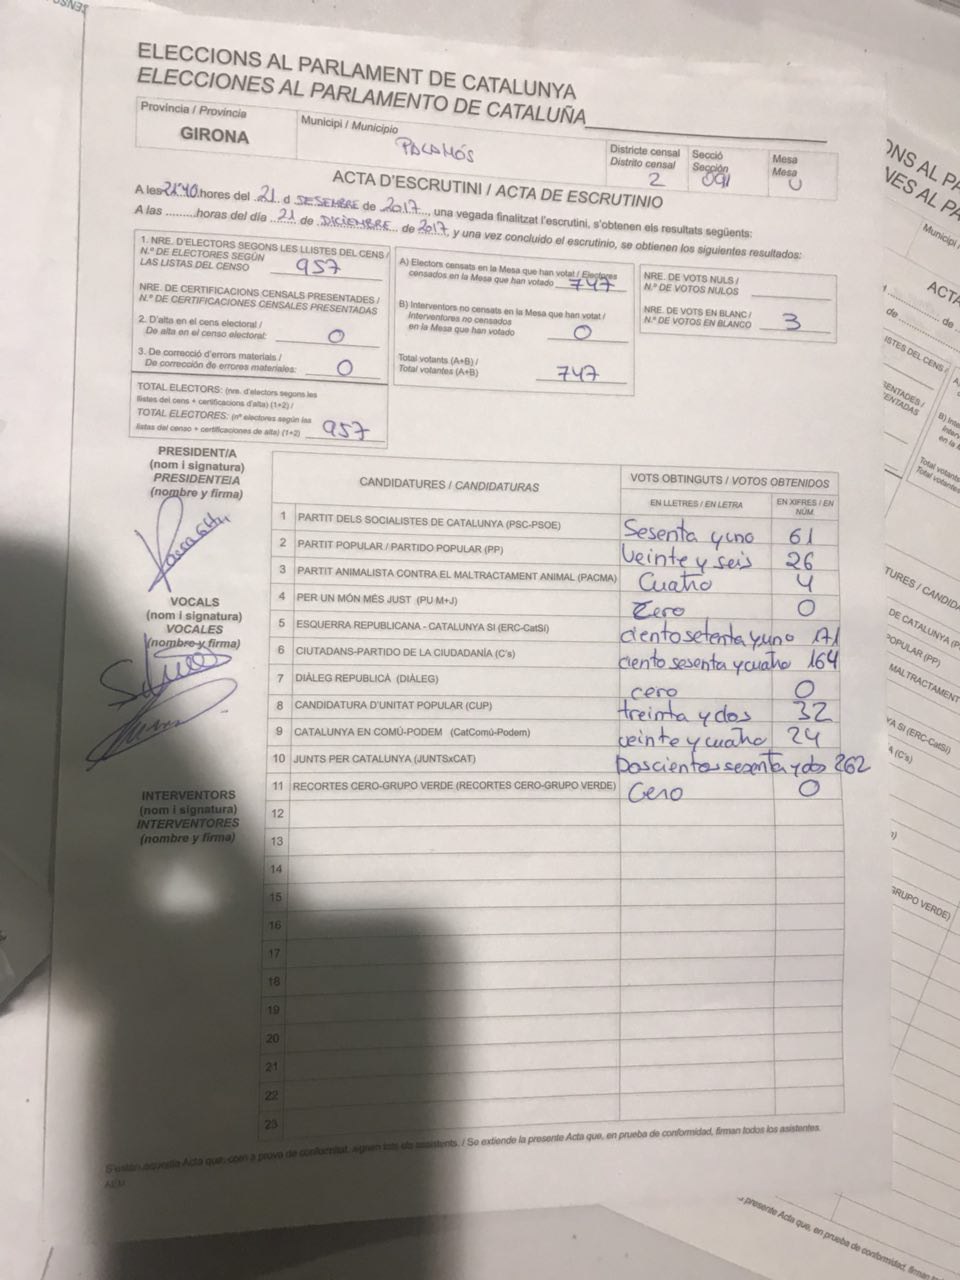 ELECCIONS AL PARLAMENT DE CATALUNYA
ELECCIONES AL PARLAMENTO DE CATALUÑA
Província / Provincia
GIRONA
Municipi / Municipio
PALAMÓS
Districte censal
Distrito censal
2
Secció
Sección
091
Mesa
Mesa
U
ACTA D'ESCRUTINI / ACTA DE ESCRUTINIO
A les 21:40 hores del 21 d DESEMBRE de 2017, una vegada finalitzat l'escrutini, s'obtenen els resultats següents:
A las ......... horas del día 21 de DICIEMBRE de 2017, y una vez concluido el escrutinio, se obtienen los siguientes resultados:
1. NRE. D'ELECTORS SEGONS LES LLISTES DEL CENS /
N.º DE ELECTORES SEGÚN
LAS LISTAS DEL CENSO 957
NRE. DE CERTIFICACIONS CENSALS PRESENTADES /
N.º DE CERTIFICACIONES CENSALES PRESENTADAS
2. D'alta en el cens electoral /
De alta en el censo electoral: 0
3. De correcció d'errors materials /
De corrección de errores materiales: 0
TOTAL ELECTORS: (nre. d'electors segons les
llistes del cens + certificacions d'alta) (1+2) /
TOTAL ELECTORES: (nº electores según las
listas del censo + certificaciones de alta) (1+2) 957
A) Electors censats en la Mesa que han votat / Electores
censados en la Mesa que han votado 747
B) Interventors no censats en la Mesa que han votat /
Interventores no censados
en la Mesa que han votado 0
Total votants (A+B) /
Total votantes (A+B) 747
NRE. DE VOTS NULS /
N.º DE VOTOS NULOS
NRE. DE VOTS EN BLANC /
N.º DE VOTOS EN BLANCO 3
PRESIDENT/A
(nom i signatura)
PRESIDENTE/A
(nombre y firma)
VOCALS
(nom i signatura)
VOCALES
(nombre y firma)
INTERVENTORS
(nom i signatura)
INTERVENTORES
(nombre y firma)
CANDIDATURES / CANDIDATURAS
VOTS OBTINGUTS / VOTOS OBTENIDOS
EN LLETRES / EN LETRA
EN XIFRES / EN
NÚM.
1 PARTIT DELS SOCIALISTES DE CATALUNYA (PSC-PSOE) Sesenta y uno 61
2 PARTIT POPULAR / PARTIDO POPULAR (PP) Veinte y seis 26
3 PARTIT ANIMALISTA CONTRA EL MALTRACTAMENT ANIMAL (PACMA) Cuatro 4
4 PER UN MÓN MÉS JUST (PU M+J) Zero 0
5 ESQUERRA REPUBLICANA - CATALUNYA SI (ERC-CatSí) ciento setenta y uno 171
6 CIUTADANS-PARTIDO DE LA CIUDADANÍA (C's) ciento sesenta y cuatro 164
7 DIÀLEG REPUBLICÀ (DIÀLEG) cero 0
8 CANDIDATURA D'UNITAT POPULAR (CUP) treinta y dos 32
9 CATALUNYA EN COMÚ-PODEM (CatComú-Podem) veinte y cuatro 24
10 JUNTS PER CATALUNYA (JUNTSxCAT) Doscientos sesenta y dos 262
11 RECORTES CERO-GRUPO VERDE (RECORTES CERO-GRUPO VERDE) Cero 0
12
13
14
15
16
17
18
19
20
21
22
23
S'estén aquesta Acta que, com a prova de conformitat, signen tots els assistents. / Se extiende la presente Acta que, en prueba de conformidad, firman todos los asistentes.